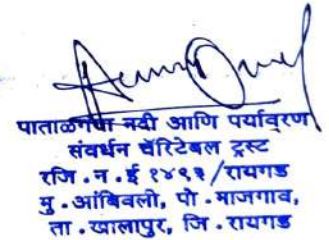 पाताळगंगा नदी आणि पर्यावरण
संवर्धन चॅरिटेबल ट्रस्ट
रजि . न . ई १४९३ / रायगड
मु . आंबिवली, पो . माजगाव,
ता . खालापुर, जि . रायगड